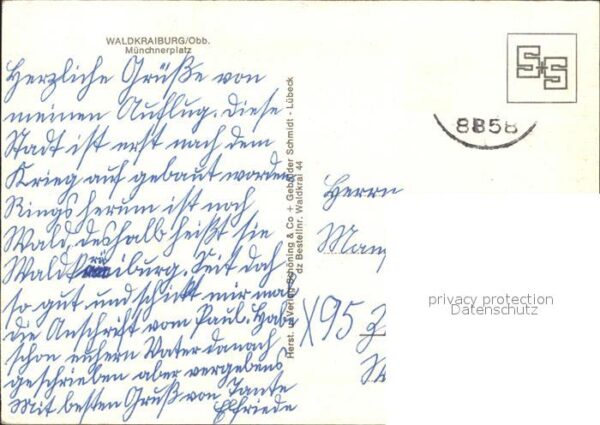 WALDKRAIBURG/Obb.
Münchnerplatz
Herzliche Grüße von
meinen Ausflug. Diese
Stadt ist erst nach dem
Krieg auf gebaut worden
Rings herum ist noch
Wald, deshalb heißt sie
Waldkraiburg. Seit doch
so gut und schickt mir mal
die Anschrift vom Paul. Habe
schon euhern Vater danach
geschrieben aber vergebens
Mit besten Gruß von Tante
Elfriede
Herst. u. Verlag Schöning & Co + Gebrüder Schmidt - Lübeck
dz Bestellnr. Waldkrai 44
S+S
8858
Herrn
privacy protection
Datenschutz